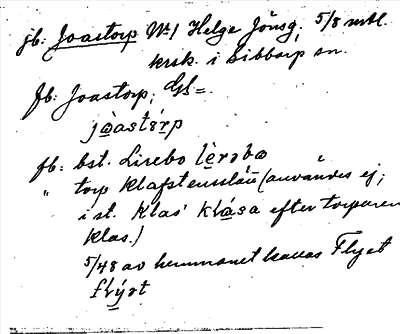 jb: Joastorp N:1 Helge Jönsg, 5/8 mtl.
krsk. i Sibbarp sn.
fb: Joastorp; Gh=.
jòastórp
fb: bst. Lirebo lèrəbo
" torp Klafstensslätt (användes ej;
i st. Klas' klɑ̀sa efter torparen
Klas.)
5/48 av hemmanet kallas Flyet
flýət